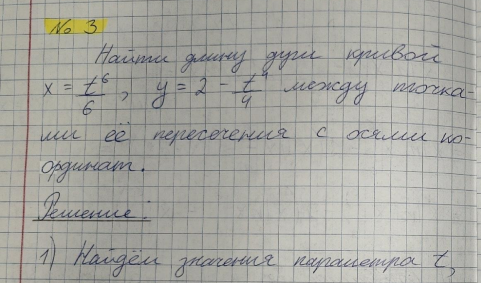 № 3
Найти длину дуги кривой
x = t⁶/6, y = 2 - t⁴/4 между точка-
ми её пересечения с осями ко-
ординат.
Решение:
1) Найдём значения параметра t,